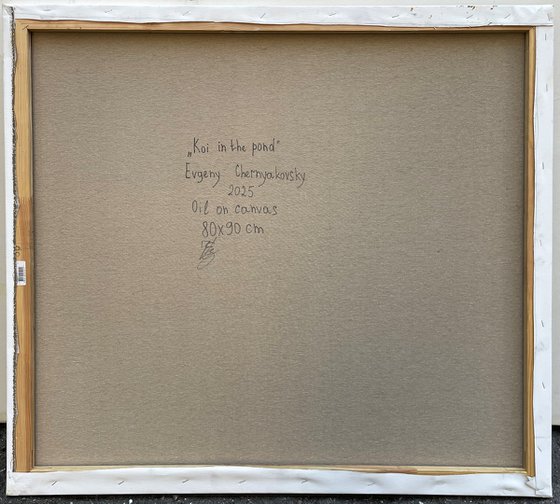 „Koi in the pond"
Evgeny Chernyakovsky
2025
Oil on canvas
80x90 cm